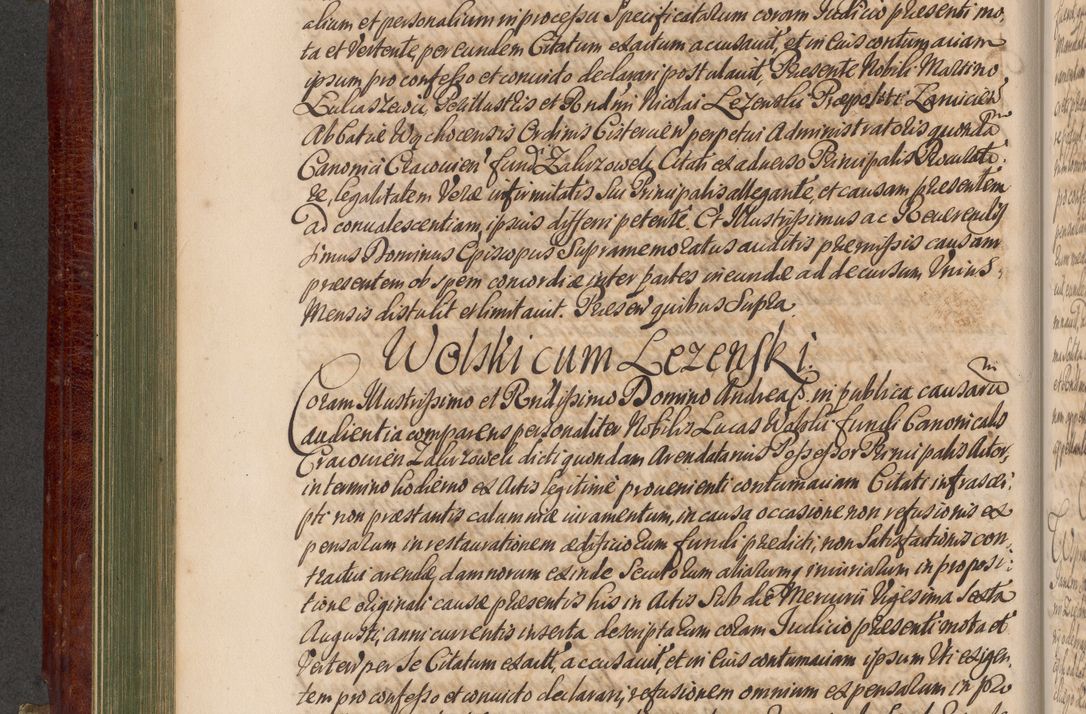 alium et personalium in processu Specificatarum coram Judicio præsenti mo,
ta et Vertente, per eundem Citatum exactum accusavit, et in Eius contumaciam
ipsum pro confesso et convicto declarari postulavit, Præsente Nobili Martino
Lukaszewic, Perillustris et Rndmi Nicolai Lezenski Præpositi
Abbatiæ Wąchocensis Ordinis Cistercien' perpetui Administratoris quonda
Canonici Cracovien' fundi Zaluzowek Citati ex adverso Principalis Procurato:
re, legalitatem Veræ infirmitatis Sui Principalis allegante, et causam præsentem
ad convalescentiam ipsius differri petente. Et Illustrissimus ac Reverendis
simus Dominus Episcopus Supramemoratus auditis præmissis causam
præsentem ob spem concordiæ inter partes ineundæ ad decursum Unius
Mensis distulit et limitavit. Præsen' quibus Supra.
Wolski cum Lezenski.
Coram Illustrissimo et Rndissimo Domino Andrea C. in publica causarum
audientia comparens personaliter Nobilis Lucas Wolski fundi Canonicalis
Cracovien Zaluzowek dicti quondam Arendatarius Possessor Principalis Actor,
in termino hodierno ex Actis legitime provenienti contumaciam Citati infrascri:
pti non præstantis calumniæ iuramentum, in causa occasione non refusionis ex
pensarum in restaurationem ædificiorum fundi prædicti, non Satisfactionis con,
tractui arendæ, damnorum exinde Secutorum aliarumq iniuriarum in proposi:
tione originali causæ præsentis his in Actis Sub die Mercurii Vigesima Sexta
Augusti, anni currentis inserta descriptarum coram Judicio præsenti mota et
Verten' per Se Citatum exacti, accusavit, et in Eius contumaciam ipsum Uti exigen,
tem pro confesso et convicto declarari, refusionem omnium expensarum in pro